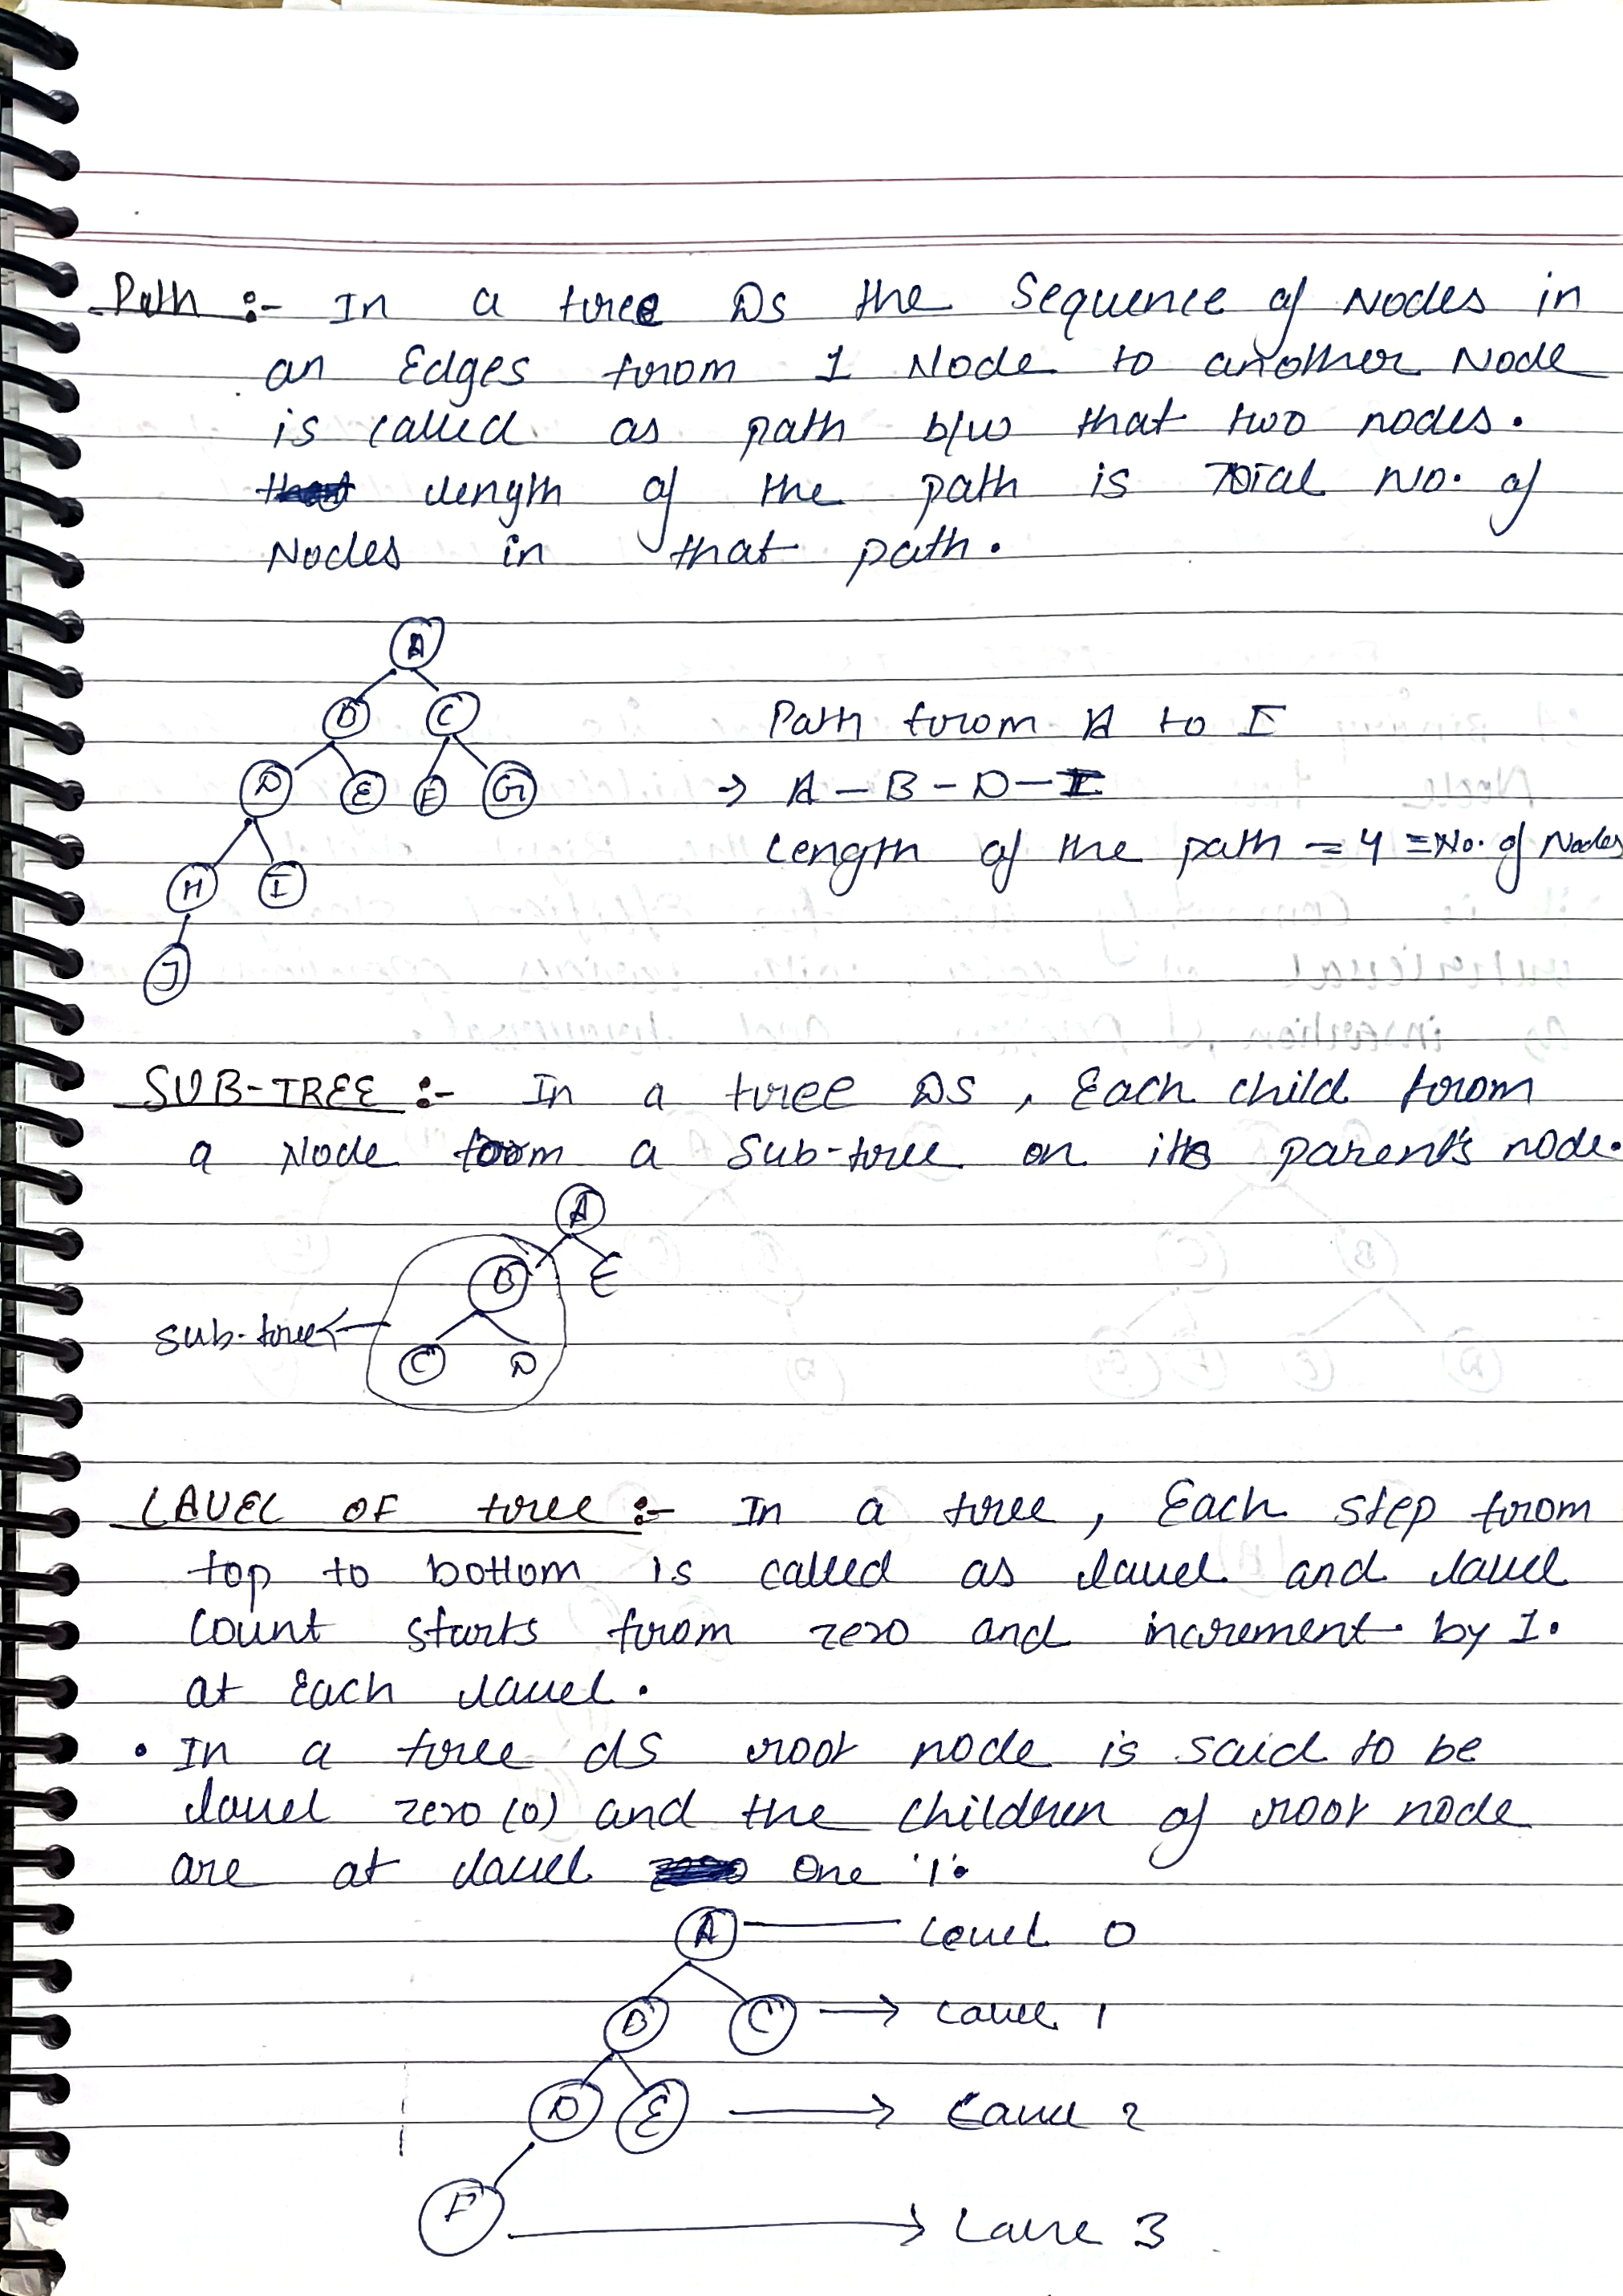 Path :- In a tree DS the Sequence of Nodes in
an Edges from 1 Node to another Node
is called as path b/w that two nodes.
length of the path is Total No. of
Nodes in that path.
A
B C
D E F G
H I
J
Path from A to I
→ A - B - D - I
Length of the path = 4 = No. of Nodes
SUB-TREE :- In a tree DS, Each child from
a Node form a Sub-tree on its parent's node.
A
B E
sub-tree
C D
LAVEL OF tree :- In a tree, Each step from
top to bottom is called as lavel and lavel
count starts from zero and increment by 1.
at Each lavel.
• In a tree ds root node is said to be
lavel zero (0) and the children of root node
are at lavel one '1'.
A Level 0
B C → Lavel 1
D E → Lavel 2
F → Lavel 3